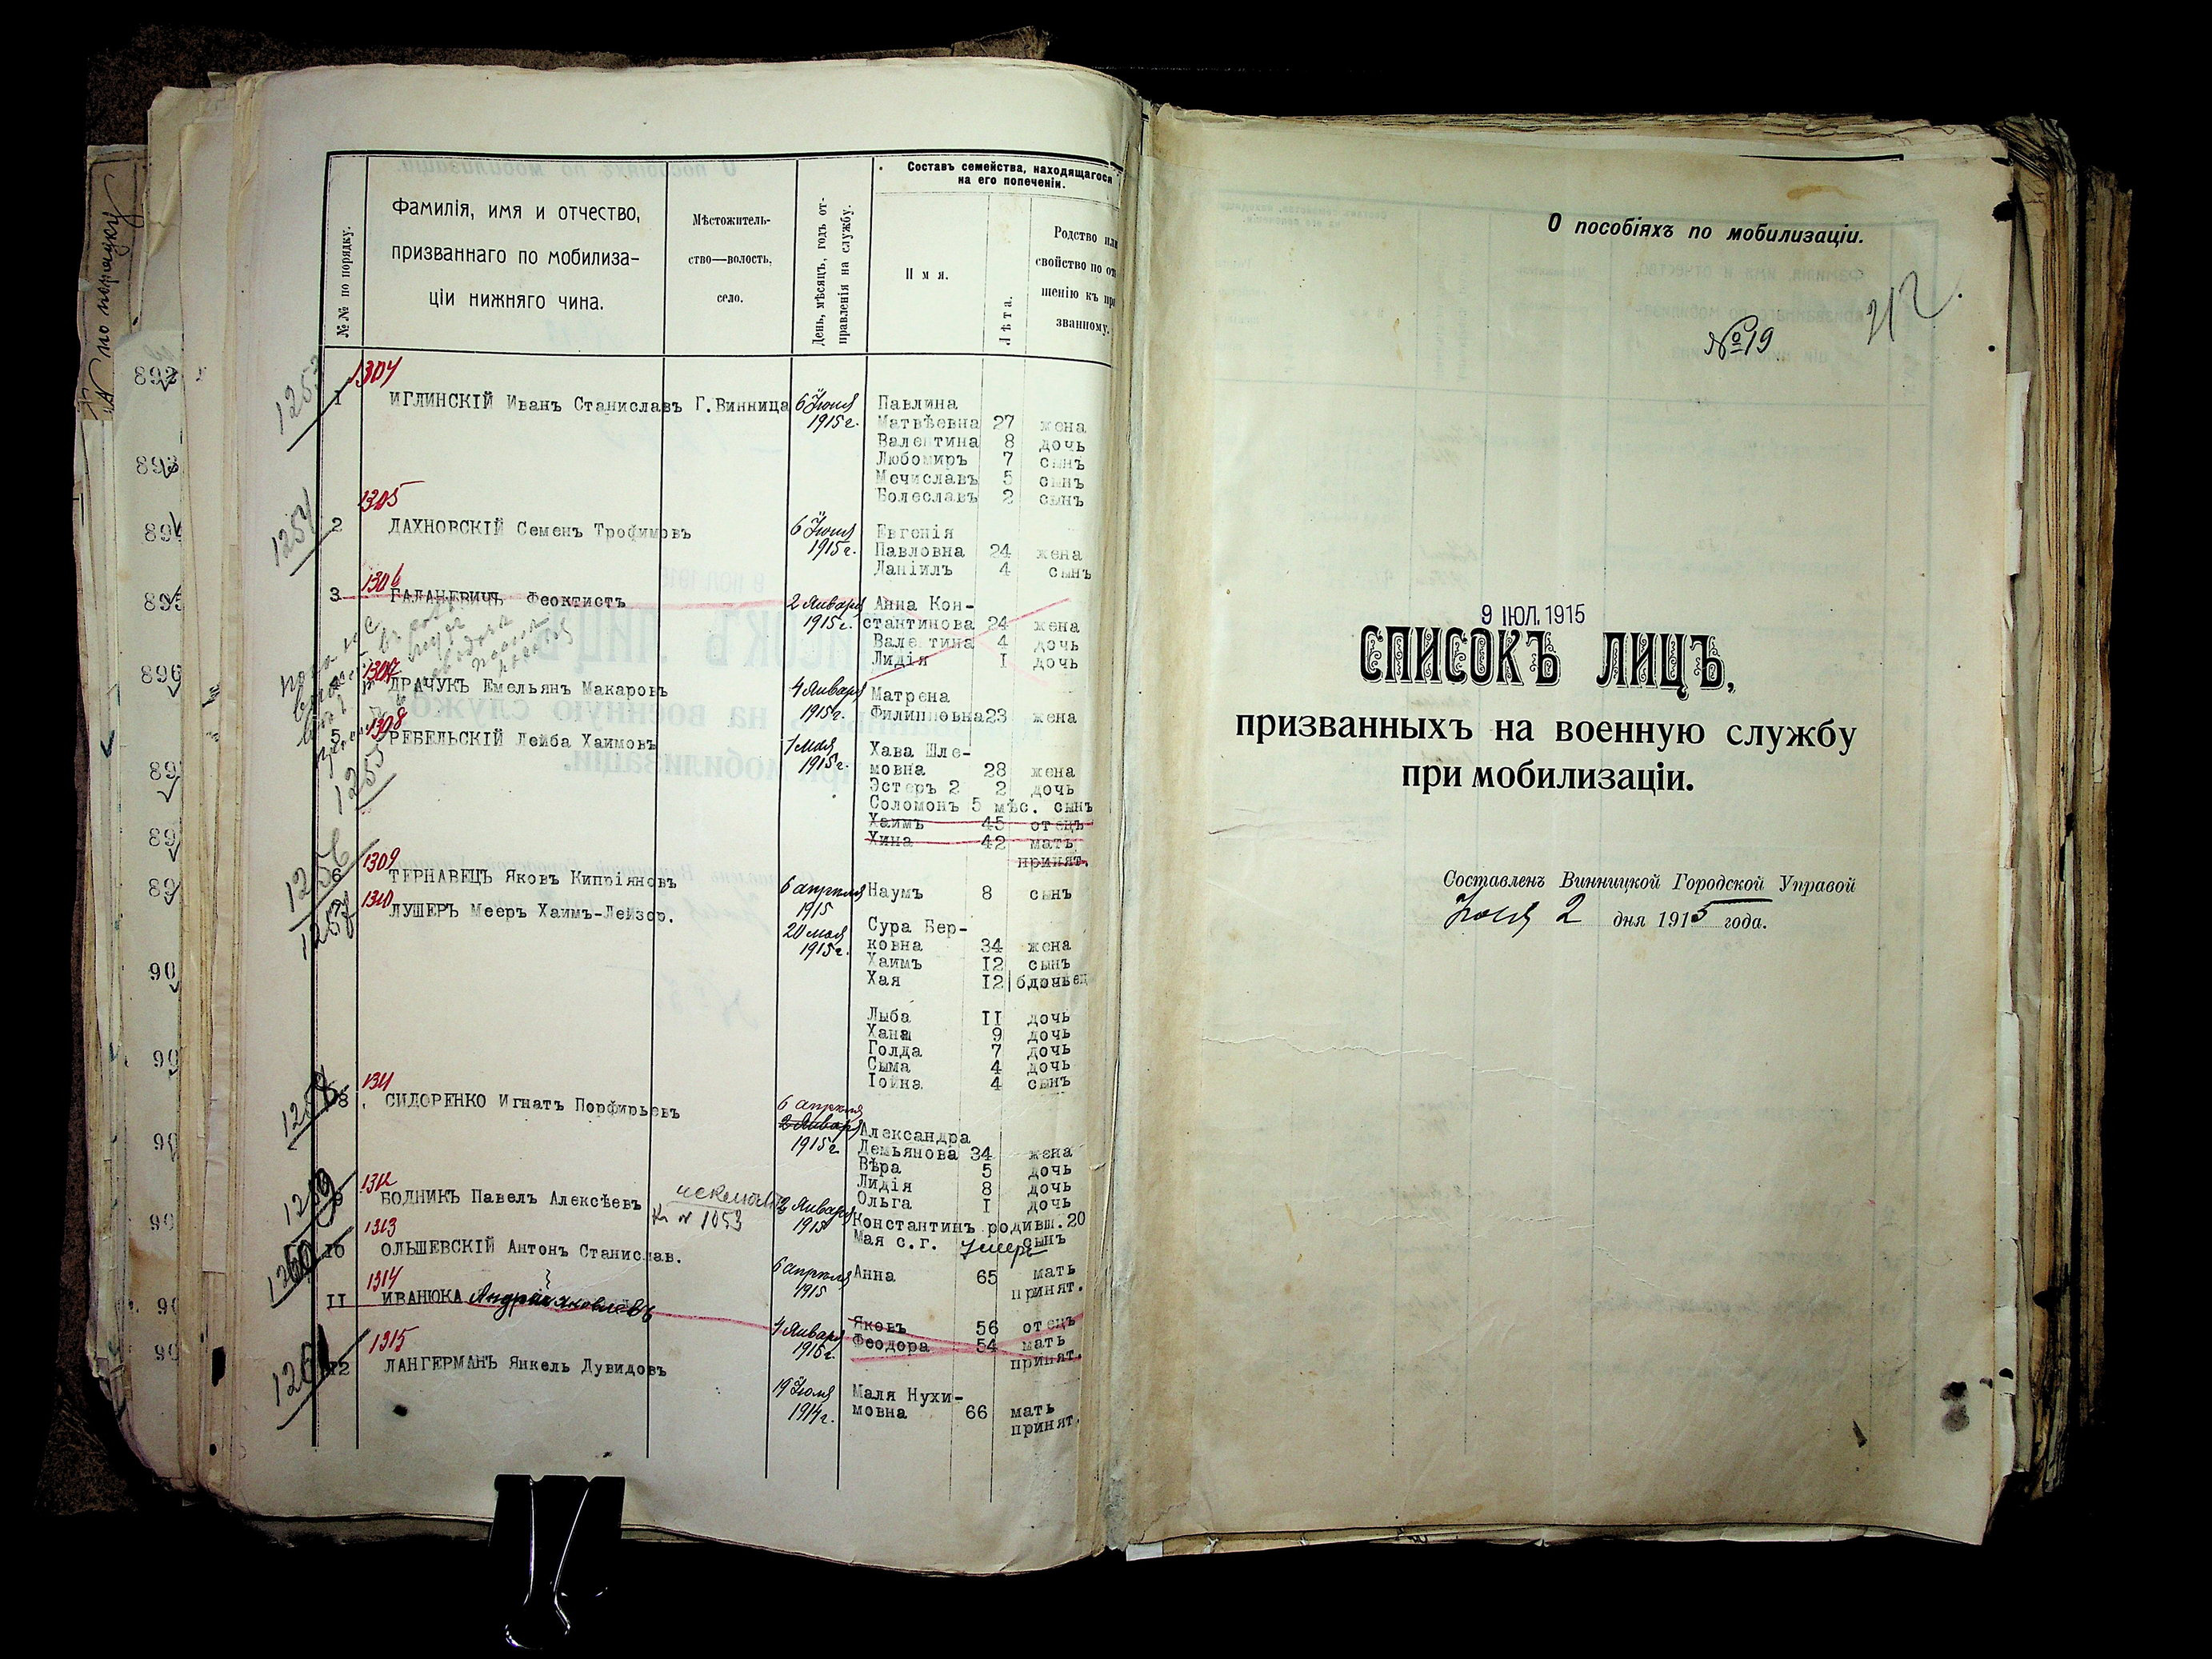 №№ по порядку.
Фамилія, имя и отчество,
призваннаго по мобилиза-
ціи нижняго чина.
Мѣстожитель-
ство—волость,
село.
День, мѣсяцъ, годъ от-
правленія на службу.
Составъ семейства, находящагося
на его попеченіи.
Имя.
Лѣта.
Родство или
свойство по от
шенію къ при
званному.
1304
1 ИГЛИНСКІЙ Иванъ Станиславъ Г.Винница 6 Іюня Павлина
1915г. Матвѣевна 27 жена
Валентина 8 дочь
Любомиръ 7 сынъ
Мечиславъ 5 сынъ
Болеславъ 2 сынъ
1254 1305
2 ДАХНОВСКІЙ Семенъ Трофимовъ 6 Іюня Евгенія
1915г. Павловна 24 жена
Даніилъ 4 сынъ
1306
3 ГАЛАНЕВИЧЪ Феоктистъ 2 Января Анна Кон-
1915г. стантинова 24 жена
Вале тина 4 дочь
Лидія I дочь
1307
ДРАЧУКЪ Емельянъ Макаровъ 4 Января Матрена
1915г. Филипповна 23 жена
1308
5 РЕБЕЛЬСКІЙ Лейба Хаимовъ 1 Мая Хава Шле-
1915г. мовна 28 жена
1255 Эстеръ 2 2 дочь
Соломонъ 5 мѣс. сынъ
Хаимъ 45 отецъ
Хина 42 мать
принят.
1256 1309
6 ТЕРНАВЕЦЪ Яковъ Кипріяновъ 6 апреля Наумъ 8 сынъ
1915
1257 1310
ЛУШЕРЪ Мееръ Хаимъ-Лейзор. 20 мая Сура Бер-
1915г. ковна 34 жена
Хаимъ I2 сынъ
Хая I2
Лыба II дочь
Хана 9 дочь
Голда 7 дочь
Сыма 4 дочь
Іойна 4 сынъ
1258 1311
8 СИДОРЕНКО Игнатъ Порфирьевъ 6 апреля
2 Января Александра
1915г. Демьянова 34 жена
Вѣра 5 дочь
Лидія 8 дочь
Ольга I дочь
Константинъ родивш. 20
Мая с.г. Умеръ сынъ
1259 1312
9 БОДНИКЪ Павелъ Алексѣевъ 2 Января
№ 1053 1915
1260 1313
10 ОЛЬШЕВСКІЙ Антонъ Станислав. 6 апреля Анна 65 мать
1915 принят.
1314
II ИВАНЮКА Андрей Яковлевъ 4 Января Яковъ 56 отецъ
1915г. Феодора 54 мать
принят.
1261 1315
12 ЛАНГЕРМАНЪ Янкель Дувидовъ 19 Іюля Маля Нухи-
1914г. мовна 66 мать
принят.
О пособіяхъ по мобилизаціи.
212
№19
9 ІЮЛ. 1915
СПИСОКЪ ЛИЦЪ,
призванныхъ на военную службу
при мобилизаціи.
Составленъ Винницкой Городской Управой
Іюля 2 дня 1915 года.